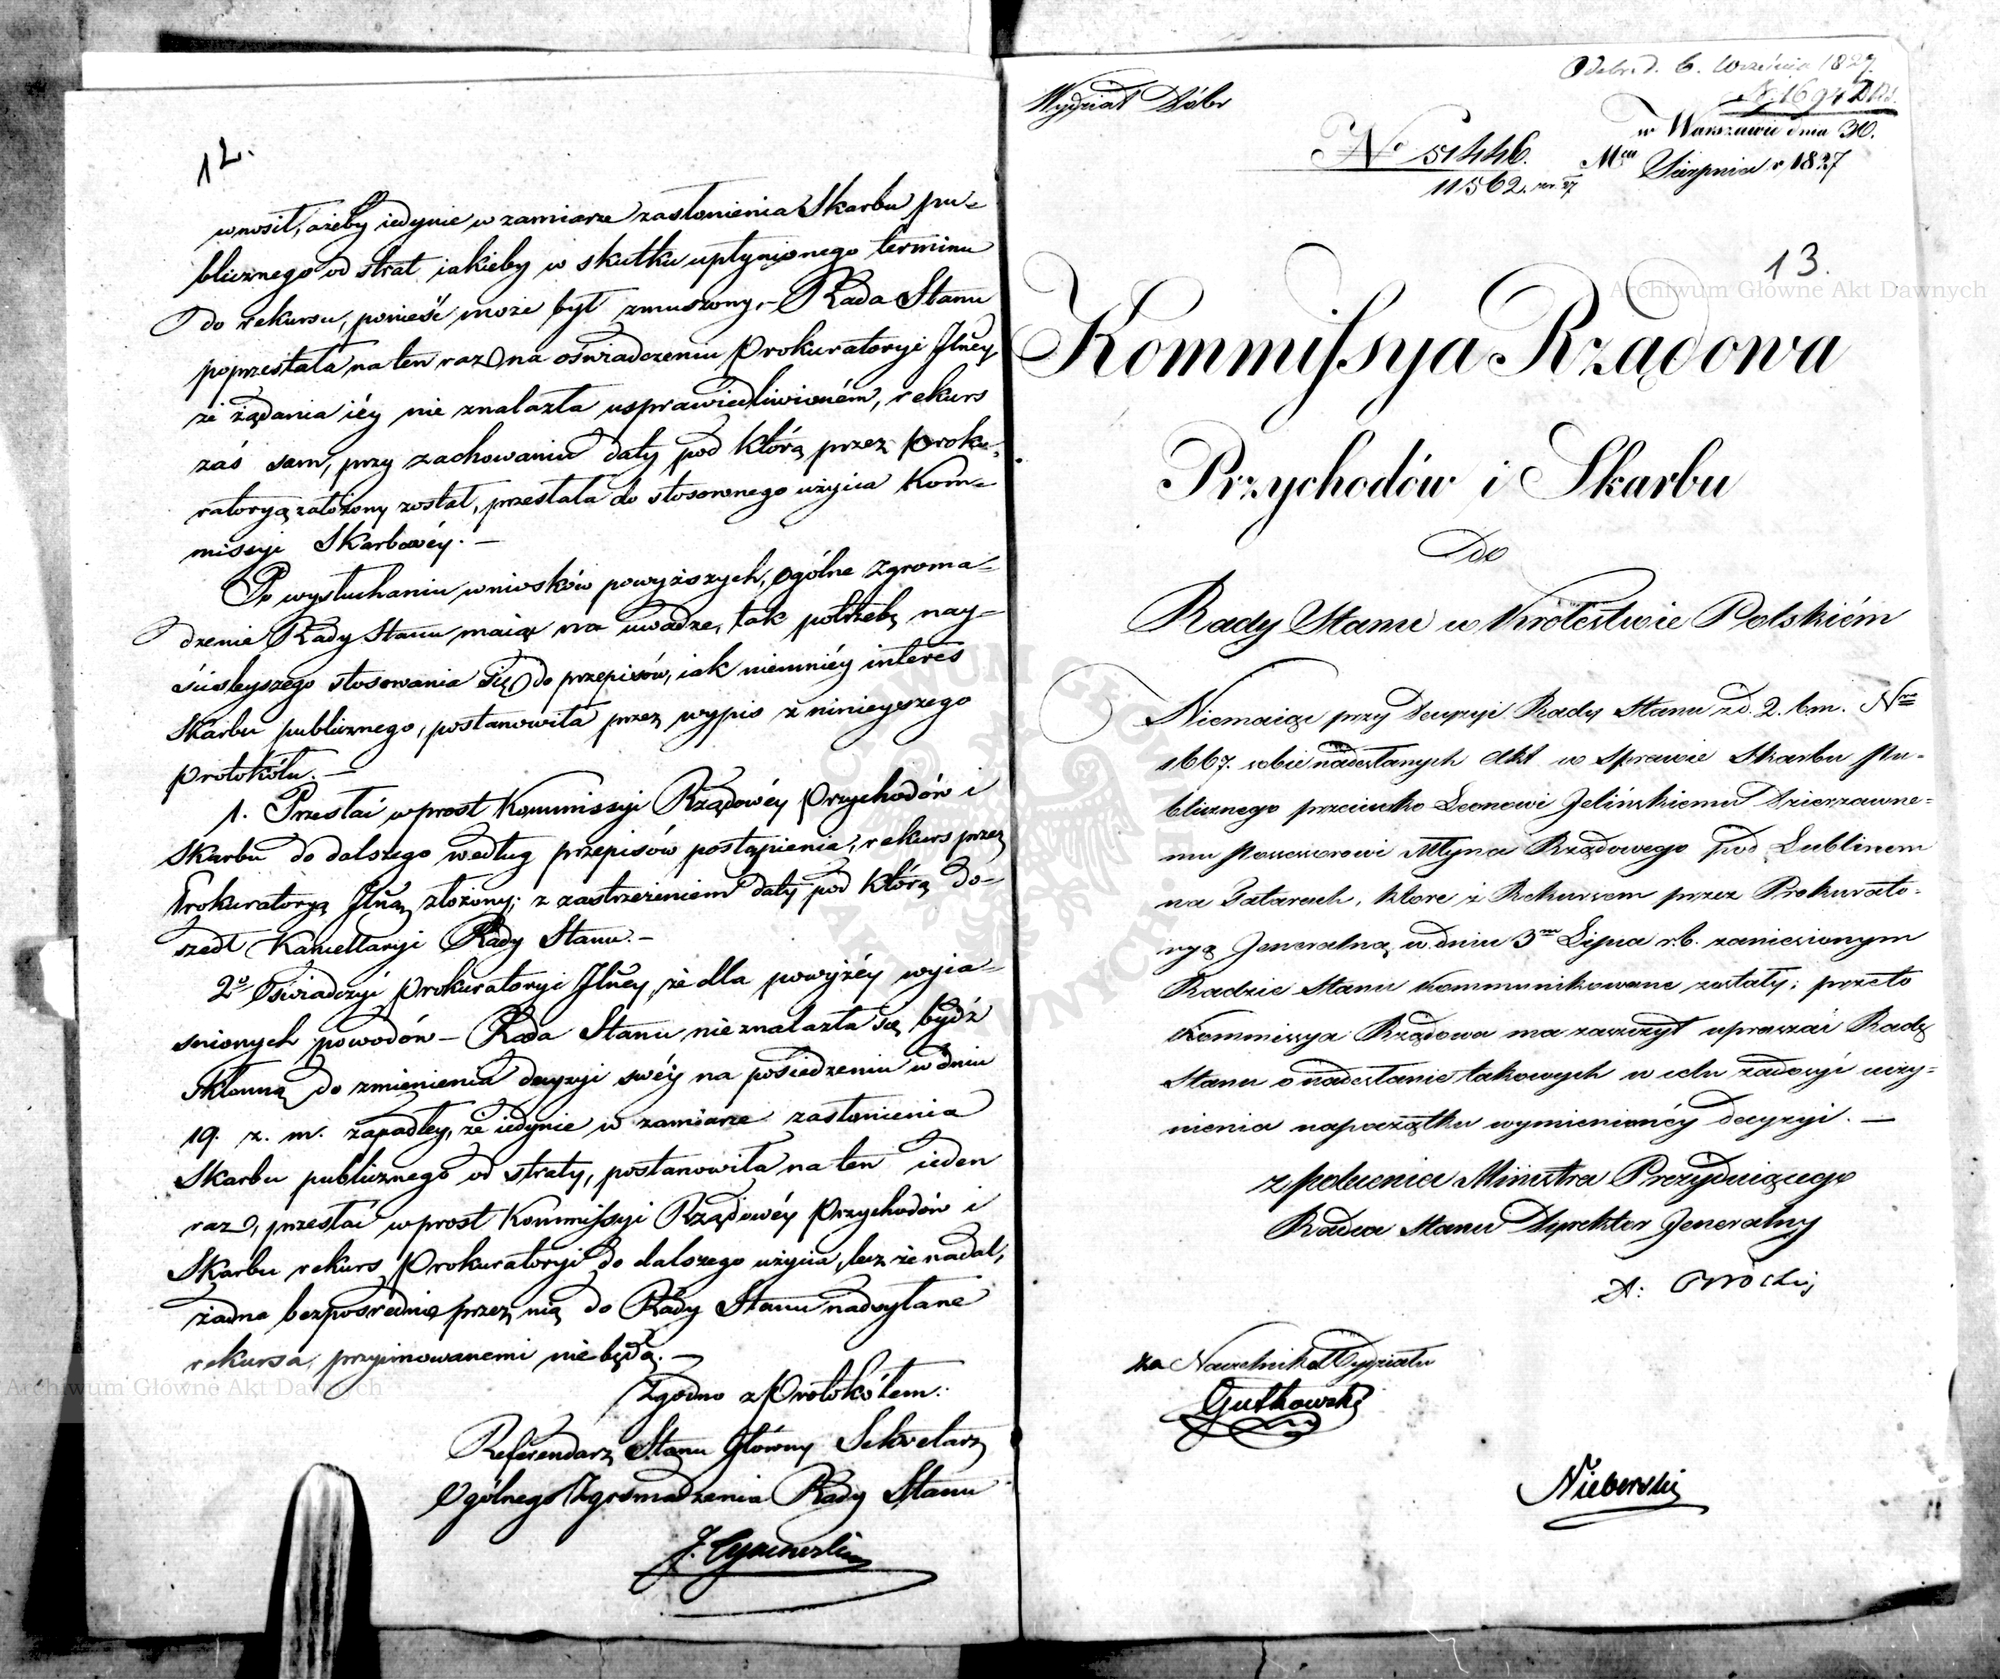 12.
wnosił, ażeby iedynie w zamiarze zasłonienia Skarbu pu=
blicznego od strat iakieby w skutku upłynionego terminu
do rekursu, ponieść może był zmuszony. – Rada Stanu
poprzestała na ten raz na oświadczeniu Prokuratoryi Jlney
że żądania iéy nie znalazła usprawiedliwioném, rekurs
zaś sam, przy zachowaniu daty pod którą przez Proku=
ratoryą założony został, przesłała do stosownego użycia Kom=
missyi Skarbowéy. –
Po wysłuchaniu wniosków powyższych, Ogólne Zgroma=
dzenie Rady Stanu maiąc na uwadze, tak potrzebę nay=
ściśleyszego stosowania się do przepisów, iak niemniéy interes
Skarbu publicznego, postanowiła przez wypis z ninieyszego
protokółu. –
1. Przesłać wprost Kommissyi Rządowéy Przychodów i
Skarbu do dalszego według przepisów postąpienia, rekurs przez
Prokuratoryą Jlną złożony; z zastrzeżeniem daty pod którą do=
szedł Kancellaryi Rady Stanu. –
2o Oświadczyć Prokuratoryi Jlney, że dla powyżéy wyia=
śnionych powodów – Rada Stanu nie znalazła się bydź
skłonną do zmienienia decyzyi swéy na posiedzeniu w dniu
19. z. m. zapadłey, że iedynie w zamiarze zasłonienia
Skarbu publicznego od straty, postanowiła na ten ieden
raz, przesłać wprost Kommissyi Rządowéy Przychodów i
Skarbu rekurs Prokuratoryi do dalszego użycia, lecz że nadal,
żadne bezpośrednio przez nią do Rady Stanu nadsyłane
rekursa, przyimowanemi nie będą. –
Zgodno z Protokółem:
Referendarz Stanu Główny Sekretarz
Ogólnego Zgromadzenia Rady Stanu
Odebr. d. 6. Września 1827.
Wydział Dóbr
w Warszawie dnia 30.
No 51446.
Mca Sierpnia r 1827
11562. nr. 27
13.
Archiwum Główne Akt Dawnych
Kommissya Rządowa
Przychodów i Skarbu
Do
Rady Stanu w Królestwie Polskiém
Niemaiąc przy Decyzyi Rady Stanu z d. 2. b.m. Nro
1667. sobie nadesłanych Akt w Sprawie Skarbu Pu=
blicznego przeciwko Leonowi Jelińskiemu Dzierzawne=
mu Possessorowi Młyna Rządowego pod Lublinem
na Tatarach, które z Rekursem przez Prokurato=
ryą Jeneralną w dniu 3m Lipca r.b. zaniesionym
Radzie Stanu kommunikowane zostały; przeto
Kommissya Rządowa ma zaszczyt upraszać Radę
Stanu o nadesłanie takowych w celu zadosyć uczy=
nienia na początku wymienionéy decyzyi. –
z polecenia Ministra Prezyduiącego
Radca Stanu Dyrektor Jeneralny
za Naczelnika Wydziału
Gutkowski
Archiwum Główne Akt Dawnych